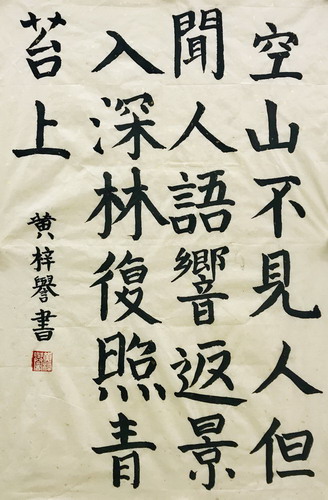 空山不見人但
聞人語響返景
入深林復照青
苔上
黄梓譽書